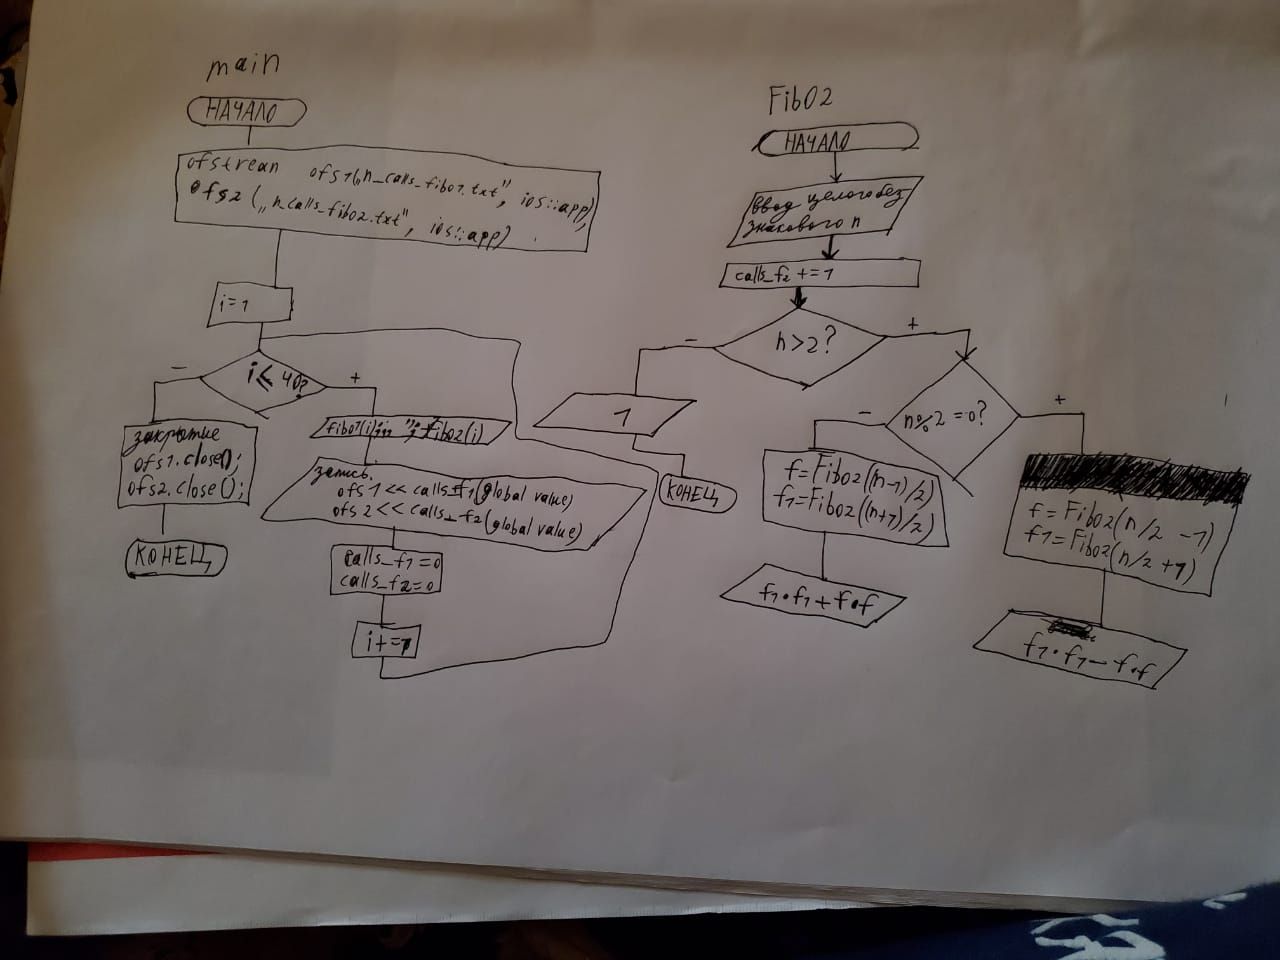 main
НАЧАЛО
ofstream ofs1(„n_calls_fib01.txt", ios::app),
ofs2 („n_calls_fib02.txt", ios::app)
i=1
i ≤ 40?
-
+
закрытие
ofs1.close();
ofs2.close();
КОНЕЦ
Fib02(i)
запись.
ofs1 << calls_f1(global value)
ofs2 << calls_f2(global value)
calls_f1=0
calls_f2=0
i+=1
Fib02
НАЧАЛО
ввод целого без
знакового n
calls_f2 +=1
n>2?
-
+
1
КОНЕЦ
n%2 =0?
-
+
f=Fib02(n-1)/2)
f1=Fib02((n+1)/2)
f1·f1+f·f
f=Fib02(n/2 -1)
f1=Fib02(n/2 +1)
f1·f1-f·f